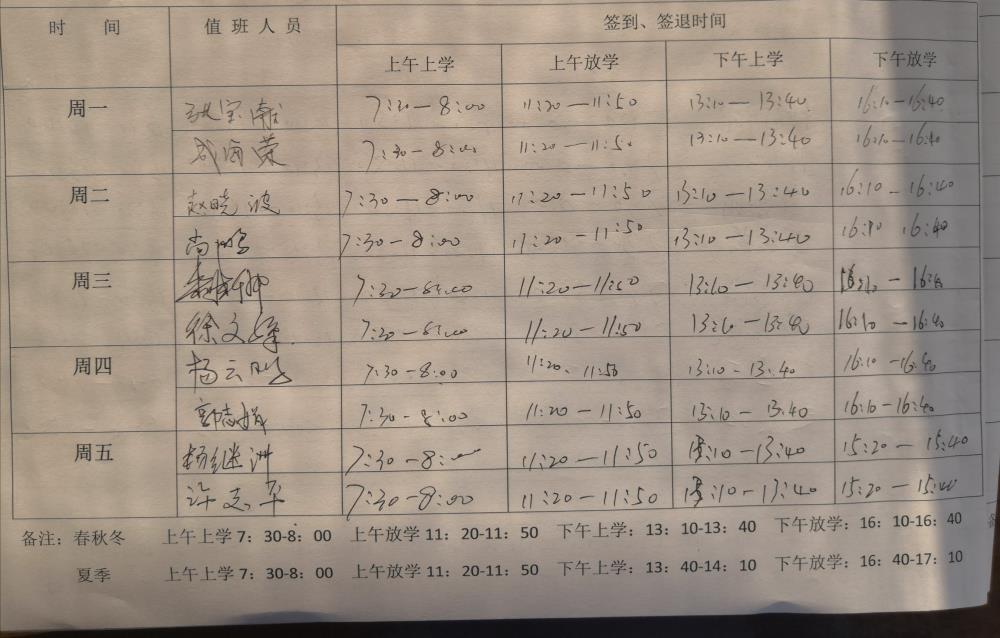 时 间 值 班 人 员 签到、签退时间
上午上学 上午放学 下午上学 下午放学
周一 7:30-8:00 11:20-11:50 13:10-13:40 16:10-16:40
7:30-8:00 11:20-11:50 13:10-13:40 16:10-16:40
周二 赵晓波 7:30-8:00 11:20-11:50 13:10-13:40 16:10-16:40
7:30-8:00 11:20-11:50 13:10-13:40 16:10 16:40
周三 7:30-8:00 11:20-11:50 13:10-13:40 16:10-16:40
徐文 7:30-8:00 11:20-11:50 13:10-13:40 16:10-16:40
周四 杨云 7:30-8:00 11:20-11:50 13:10-13:40 16:10-16:40
郭志 7:30-8:00 11:20-11:50 13:10-13:40 16:10-16:40
周五 杨继洲 7:30-8:00 11:20-11:50 13:10-13:40 15:20-15:40
许志平 7:30-8:00 11:20-11:50 13:10-13:40 15:20-15:40
备注：春秋冬 上午上学7：30-8：00 上午放学11：20-11：50 下午上学：13：10-13：40 下午放学：16：10-16：40
夏季 上午上学7：30-8：00 上午放学11：20-11：50 下午上学：13：40-14：10 下午放学：16：40-17：10